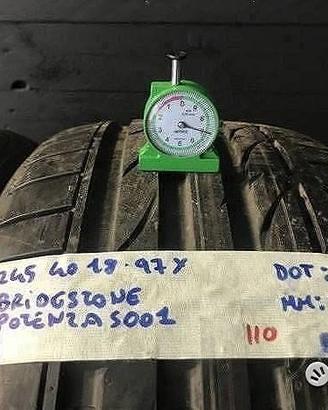 245 40 18 · 97Y
BRIDGSZONE
POZENZA S001
DOT:
MM:
110